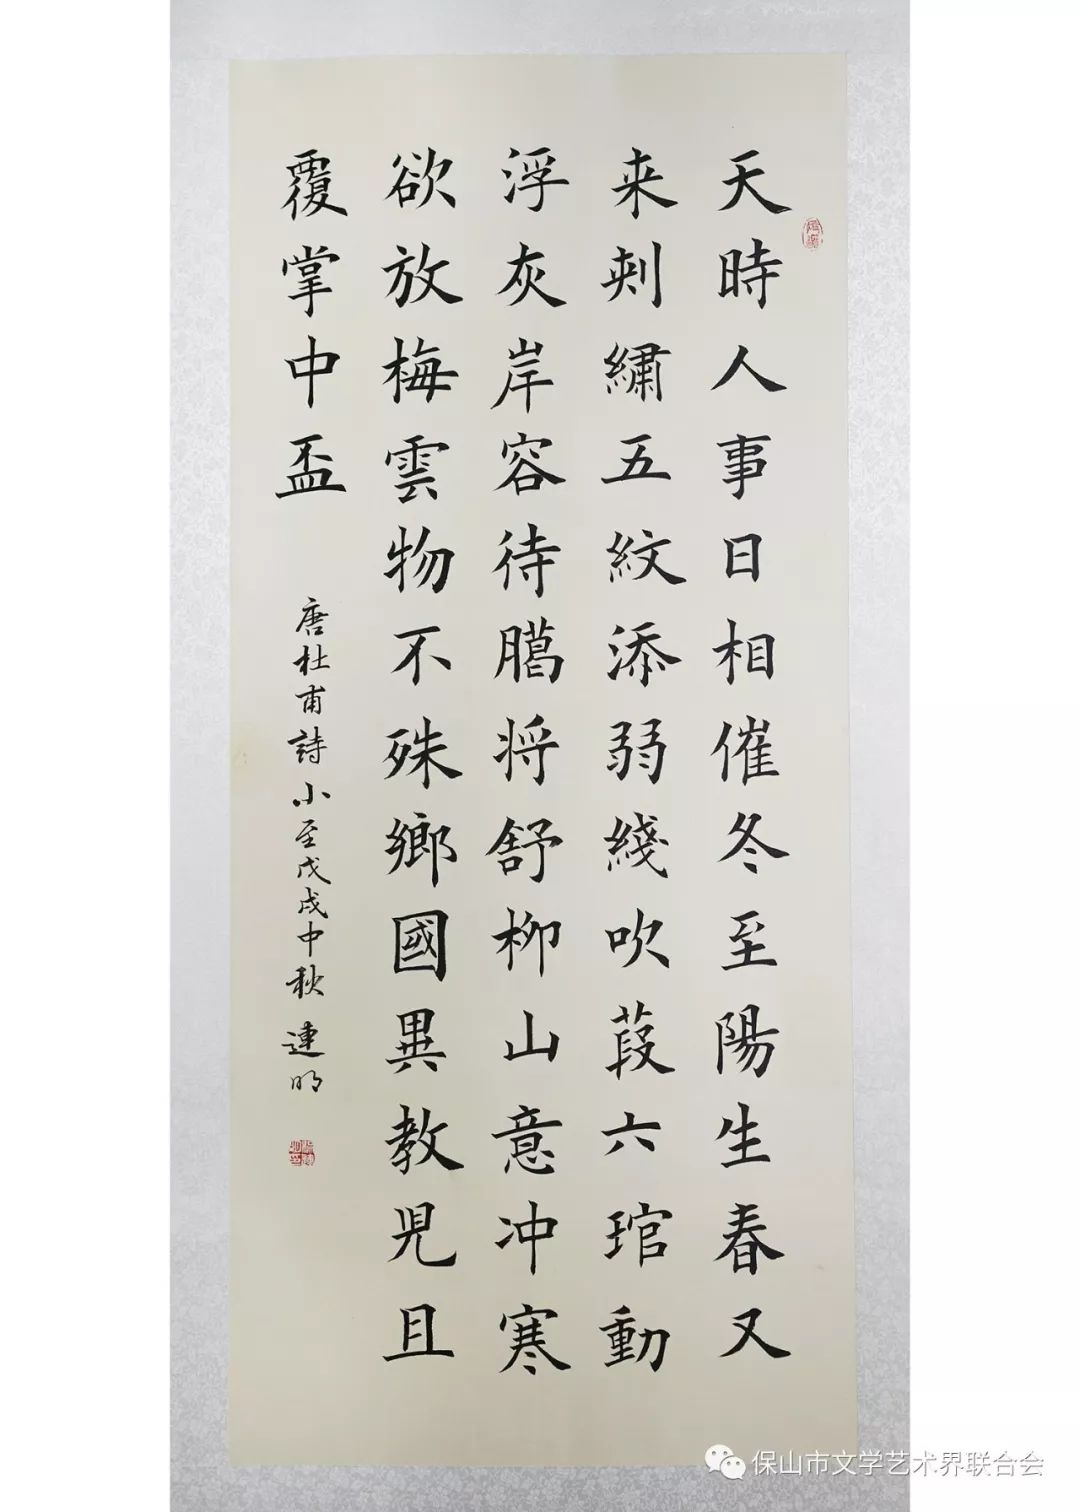 天時人事日相催冬至陽生春又
来刺繡五紋添弱綫吹葭六琯動
浮灰岸容待臈将舒柳山意冲寒
欲放梅雲物不殊鄉國異教児且
覆掌中盃
唐杜甫詩小至戊戌中秋 連明
保山市文学艺术界联合会